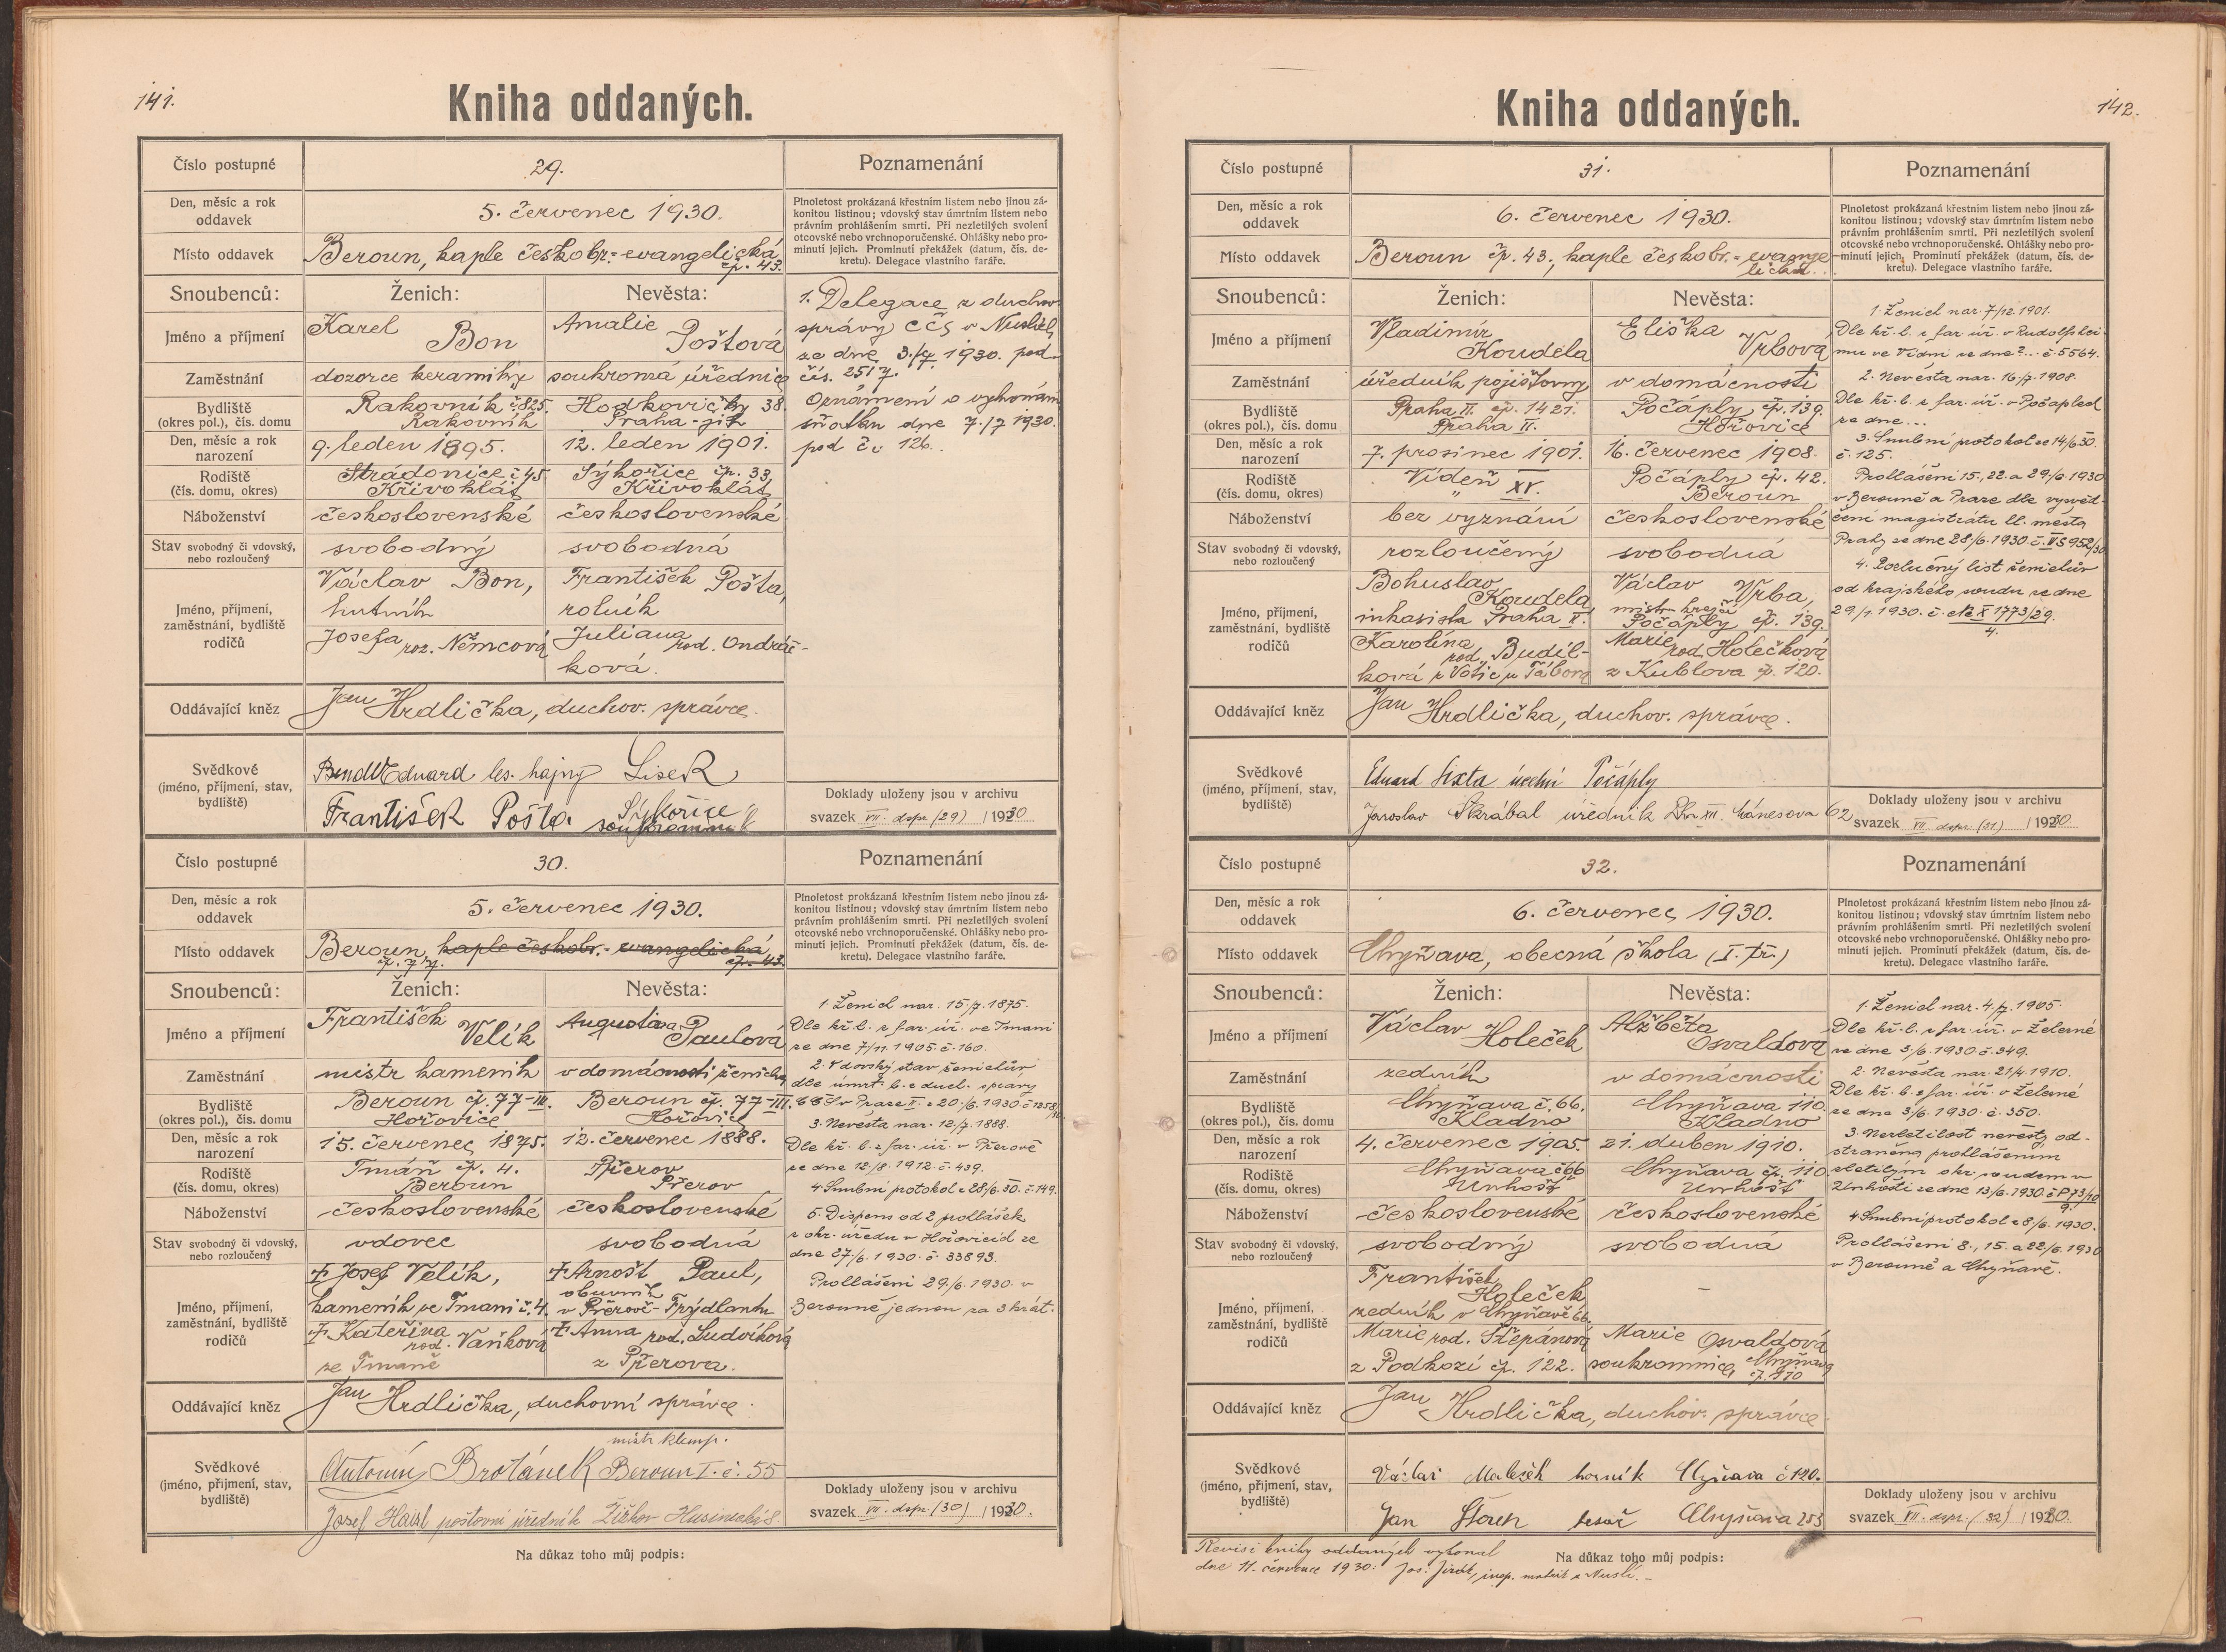 141.
Kniha oddaných.
Číslo postupné
29.
Poznamenání
Den, měsíc a rok
oddavek
5. červenec 1930.
Plnoletost prokázaná křestním listem nebo jinou zá-
konitou listinou; vdovský stav úmrtním listem nebo
právním prohlášením smrti. Při nezletilých svolení
otcovské nebo vrchnoporučenské. Ohlášky nebo pro-
minutí jejich. Prominutí překážek (datum, čís. de-
kretu). Delegace vlastního faráře.
Místo oddavek
Beroun, kaple českobr.-evangelická
čp. 43.
Snoubenců:
Ženich:
Nevěsta:
Jméno a příjmení
Karel Bon
Amalie Poštová
Zaměstnání
dozorce keramiky
soukromá úřednice
Bydliště
(okres pol.), čís. domu
Rakovník č. 825.
Rakovník
Hodkovičky 38.
Praha-jih
Den, měsíc a rok
narození
9. leden 1895.
12. leden 1901.
Rodiště
(čís. domu, okres)
Stradonice č 45
Křivoklát
Sýkořice čp. 33,
Křivoklát
Náboženství
československé
československé
Stav svobodný či vdovský,
nebo rozloučený
svobodný
svobodná
Jméno, příjmení,
zaměstnání, bydliště
rodičů
Václav Bon,
hutník
Josefa roz. Němcová
František Pošta,
rolník
Juliana rod. Ondráč-
ková.
Oddávající kněz
Jan Hrdlička, duchov. správce.
Svědkové
(jméno, příjmení, stav,
bydliště)
Eduard les. hajný Lisek
František Pošta. Sýkořice
soukromník
1. Delegace z duchov.
správy CČS v Nuslích
ze dne 3./7. 1930. pod
čís. 2517.
Oznámení o vykonám
sňatku dne 7./7 1930.
pod č. 126.
Doklady uloženy jsou v archivu
svazek VII. dspr (29) / 1930
Číslo postupné
30.
Poznamenání
Den, měsíc a rok
oddavek
5. červenec 1930.
Plnoletost prokázaná křestním listem nebo jinou zá-
konitou listinou; vdovský stav úmrtním listem nebo
právním prohlášením smrti. Při nezletilých svolení
otcovské nebo vrchnoporučenské. Ohlášky nebo pro-
minutí jejich. Prominutí překážek (datum, čís. de-
kretu). Delegace vlastního faráře.
Místo oddavek
Beroun, kaple českobr.-evangelická
čp. 77. čp. 43.
Snoubenců:
Ženich:
Nevěsta:
Jméno a příjmení
František Velík
Augustina Paulová
Zaměstnání
mistr kameník
v domácnosti ženicha
Bydliště
(okres pol.), čís. domu
Beroun čp. 77-III.
Hořovice
Beroun čp. 77-III.
Hořovice
Den, měsíc a rok
narození
15. červenec 1875.
12. červenec 1888.
Rodiště
(čís. domu, okres)
Tmáň čp. 4.
Beroun
Přerov
Přerov
Náboženství
československé
československé
Stav svobodný či vdovský,
nebo rozloučený
vdovec
svobodná
Jméno, příjmení,
zaměstnání, bydliště
rodičů
‡ Josef Velík,
kameník ve Tmani č. 4.
‡ Kateřina
rod. Vaňková
ze Tmaně
‡ Arnošt Paul,
obuvník
v Přerově-Frýdlantu
‡ Anna rod. Ludvíková
z Přerova.
Oddávající kněz
Jan Hrdlička, duchovní správce.
Svědkové
(jméno, příjmení, stav,
bydliště)
mistr klemp.
Antonín Brotánek Beroun I. č. 55
Josef Haisl poštovní úředník Žižkov Husinecká 8.
1. Ženich nar. 15/7. 1875.
Dle kř. l. z far. úř. ve Tmani
ze dne 7/11. 1905. č. 160.
2. Vdovský stav ženichův
dle úmrt. l. z duch. správy
v Praze II. z 20./6. 1930. č.
3. Nevěsta nar. 12/7. 1888.
Dle kř. l. z far. úř. v Přerově
ze dne 12/8. 1912. č. 439.
4. Snubní protokol z 28/6. 30. č. 149.
5. Dispens od 2 prohlášek
z okr. úřadu v Hořovicích ze
dne 27./6. 1930. č. 33893.
Prohlášeni 29./6. 1930. v
Berouně jednou za 3 krát.
Doklady uloženy jsou v archivu
svazek VII. dspr. (30) / 1930.
Na důkaz toho můj podpis:
142.
Kniha oddaných.
Číslo postupné
31.
Poznamenání
Den, měsíc a rok
oddavek
6. červenec 1930.
Plnoletost prokázaná křestním listem nebo jinou zá-
konitou listinou; vdovský stav úmrtním listem nebo
právním prohlášením smrti. Při nezletilých svolení
otcovské nebo vrchnoporučenské. Ohlášky nebo pro-
minutí jejich. Prominutí překážek (datum, čís. de-
kretu). Delegace vlastního faráře.
Místo oddavek
Beroun čp. 43., kaple českobr.-evange-
lická.
Snoubenců:
Ženich:
Nevěsta:
Jméno a příjmení
Vladimír
Koudela
Eliška
Vrbová
Zaměstnání
úředník pojišťovny
v domácnosti
Bydliště
(okres pol.), čís. domu
Praha II. čp. 1421.
Praha II.
Počáply čp. 139.
Hořovice
Den, měsíc a rok
narození
7. prosinec 1901.
16. červenec 1908.
Rodiště
(čís. domu, okres)
Vídeň XV.
"
Počáply čp. 42.
Beroun
Náboženství
bez vyznání
československé
Stav svobodný či vdovský,
nebo rozloučený
rozloučený
svobodná
Jméno, příjmení,
zaměstnání, bydliště
rodičů
Bohuslav
Koudela
inkasista Praha II.
Karolína
rod. Budil-
ková z Votic u Tábora
Václav Vrba,
mistr krejčí
Počáply čp. 139.
Marie
rod. Holečková
z Kublova čp. 120.
Oddávající kněz
Jan Hrdlička, duchov. správce.
Svědkové
(jméno, příjmení, stav,
bydliště)
Eduard Sixta Počáply
Jaroslav Škrábal úředník XII. Mánesova 62
1. Ženich nar. 7/12. 1901.
Dle kř. l. z far. úř. v Rudolfshei-
mu ve Vídni ze dne ?... č. 5564.
2. Nevěsta nar. 16./7. 1908.
Dle kř. l. z far. úř. v Počaplech
ze dne...
3. Snubní protokol ze 14/6 30.
č. 125.
Prohlášeni 15., 22. a 29/6. 1930
v Berouně a Praze dle vysvěd-
čení magistrátu hl. města
Prahy ze dne 28/6. 1930. č. VI S 952/30
4. Rozlučný list ženichův
od krajského soudu ze dne
29/1. 1930. č. Nc X 1773/29.
4.
Doklady uloženy jsou v archivu
svazek VII. dspr. (31.) / 1930
Číslo postupné
32.
Poznamenání
Den, měsíc a rok
oddavek
6. červenec 1930.
Plnoletost prokázaná křestním listem nebo jinou zá-
konitou listinou; vdovský stav úmrtním listem nebo
právním prohlášením smrti. Při nezletilých svolení
otcovské nebo vrchnoporučenské. Ohlášky nebo pro-
minutí jejich. Prominutí překážek (datum, čís. de-
kretu). Delegace vlastního faráře.
Místo oddavek
Chyňava, obecná škola (I. tř.)
Snoubenců:
Ženich:
Nevěsta:
Jméno a příjmení
Václav Holeček
Alžběta
Osvaldová
Zaměstnání
zedník
v domácnosti
Bydliště
(okres pol.), čís. domu
Chyňava č. 66.
Kladno
Chyňava 110.
Kladno
Den, měsíc a rok
narození
4. červenec 1905.
21. duben 1910.
Rodiště
(čís. domu, okres)
Chyňava č 66
Unhošť
Chyňava čp. 110
Unhošť
Náboženství
československé
československé
Stav svobodný či vdovský,
nebo rozloučený
svobodný
svobodná
Jméno, příjmení,
zaměstnání, bydliště
rodičů
František
Holeček
zedník v Chyňavě 66.
Marie rod. Štěpánová
z Podkozí čp. 122.
–
Marie Osvaldová
soukromnice, Chyňava
čp. 110
Oddávající kněz
Jan Hrdlička, duchov. správce
Svědkové
(jméno, příjmení, stav,
bydliště)
Václav Maleček horník Chyňava č 120.
Jan tesař Chyňava 253
1. Ženich nar. 4./7. 1905.
Dle kř. l. z far. úř. v Železné
ze dne 3/6. 1930. č. 349.
2. Nevěsta nar. 21/4. 1910.
Dle kř. l. z far. úř. v Železné
ze dne 3/6. 1930. č. 350.
3. Nezletilost nevěsty od-
straněna prohlášením
zletilým okr. soudem v
Unhošti ze dne 13/6. 1930. č P 73/10
9.
4. Snubní protokol z 8/6. 1930.
Prohlášeni 8., 15. a 22/6. 1930
v Berouně a Chyňavě.
Doklady uloženy jsou v archivu
svazek VII. dspr. (32) / 1930.
Revisi knihy oddaných vykonal
dne 11. července 1930: Jos. Jirát, insp. matrik z Nuslí. –
Na důkaz toho můj podpis: